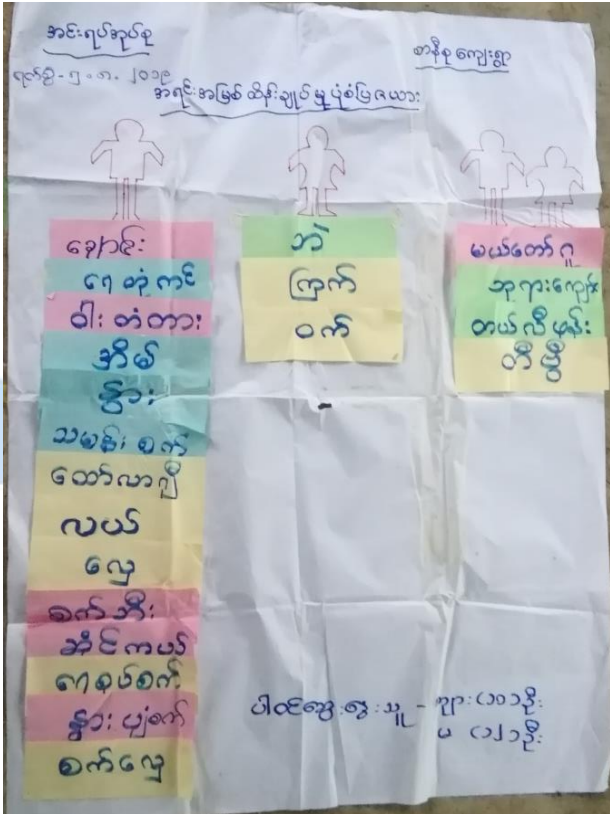 အင်းရပ်အုပ်စု
စာနီစုကျေးရွာ
ရက်စွဲ - ၅ . ၈ . ၂၀၁၉
အရင်းအမြစ်ထိန်းချုပ်မှုပုံစံပြဇယား
ချောင်း
ရေတုံကင်
ဝါးတံတား
အိမ်
နွား
သမန်းစက်
ထော်လာဂျီ
လယ်
လှေ
စက်ဘီး
ဆိုင်ကယ်
ရေစုပ်စက်
နွားပျံစက်
စက်လှေ
ဘဲ
ကြက်
ဝက်
မယ်တော်ဂူ
ဘုရားကျောင်း
တယ်လီဖုန်း
တီဗွီ
ပါဝင်ဆွေးနွေးသူ - ကျား (၁၀)ဦး
မ (၁၂)ဦး